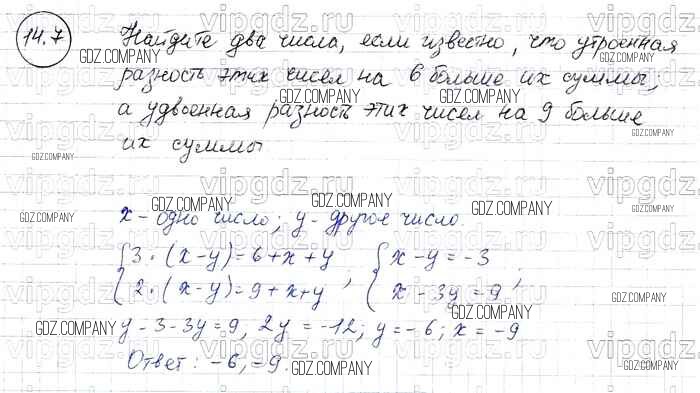 14.7 Найдите два числа, если известно, что утроенная
разность этих чисел на 6 больше их суммы,
а удвоенная разность этих чисел на 9 больше
их суммы
x - одно число; y - другое число.
{3·(x-y)=6+x+y {x-y=-3
{2·(x-y)=9+x+y ; {x-3y=9 ;
y-3-3y=9, 2y=-12; y=-6; x=-9
Ответ: -6, -9.